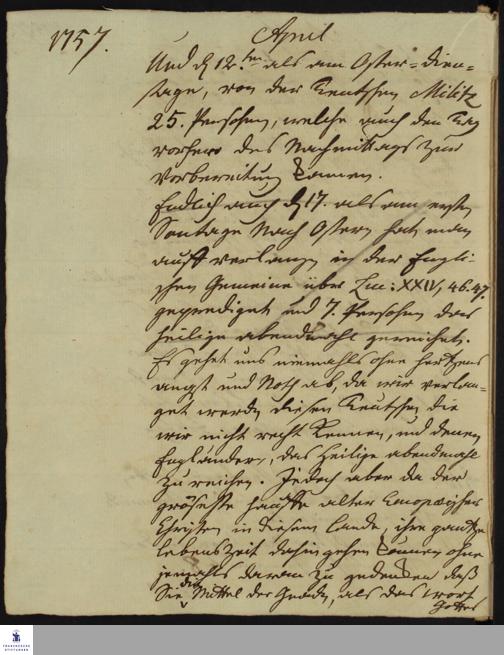 1757.
April
Und d 12.ten als am Oster-Diens-
tage, von der Teutschen Militz
25. Persohnen, welche auch den Tag
vorhero des Nachmittags zur
Vorbereitung kamen.
Endlich auch d 17. als am ersten
Sontage Nach Ostern hat man
auff verlangen in der Engli-
schen Gemeine über Luc: XXIV, 46.47.
geprediget und 7. Persohnen das
heilige abendmahl gereichet.
Es gehet uns niemahls ohne Hertzens
angst und Noth ab, da wir verlan-
get werden diesen Teutschen die
wir nicht recht kennen, und denen
Engländern, das heilige abendmahl
zu reichen. Jedoch aber da der
gröseste hauffe alter Europæischer
Christen in diesem Lande, ihre gantze
Lebenszeit dahin gehen können ohne
jemahls daran zu gedencken daß
Sie die Mittel der Gnaden, als das wort
Gottes
FRANCKESCHE
STIFTUNGEN